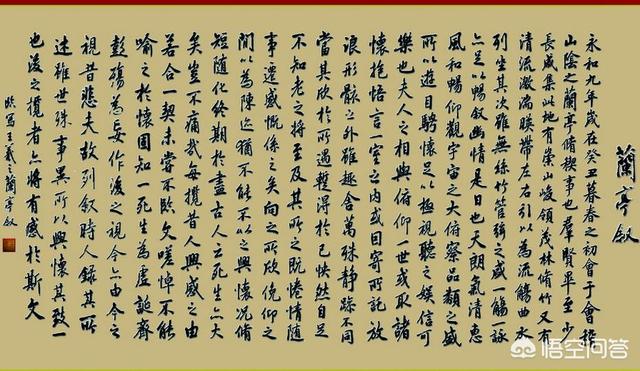 蘭亭叙
永和九年歲在癸丑暮春之初會于會稽
山陰之蘭亭脩稧事也羣賢畢至少
長咸集此地有崇山峻領茂林脩竹又有
清流激湍暎帶左右引以為流觴曲水
列坐其次雖無絲竹管絃之盛一觴一詠
亦足以暢叙幽情是日也天朗氣清惠
風和暢仰觀宇宙之大俯察品類之盛
所以遊目騁懷足以極視聽之娛信可
樂也夫人之相與俯仰一世或取諸
懷抱悟言一室之內或因寄所託放
浪形骸之外雖趣舍萬殊靜躁不同
當其欣於所遇蹔得於己怏然自足
不知老之將至及其所之既惓情隨
事遷感慨係之矣向之所欣俛仰之
間以為陳迹猶不能不以之興懷況脩
短隨化終期於盡古人云死生亦大
矣豈不痛哉每攬昔人興感之由
若合一契未嘗不臨文嗟悼不能
喻之於懷固知一死生為虛誕齊
彭殤為妄作後之視今亦由今之
視昔悲夫故列叙時人錄其所
述雖世殊事異所以興懷其致一
也後之攬者亦將有感於斯文
臨寫王羲之蘭亭叙
悟空问答